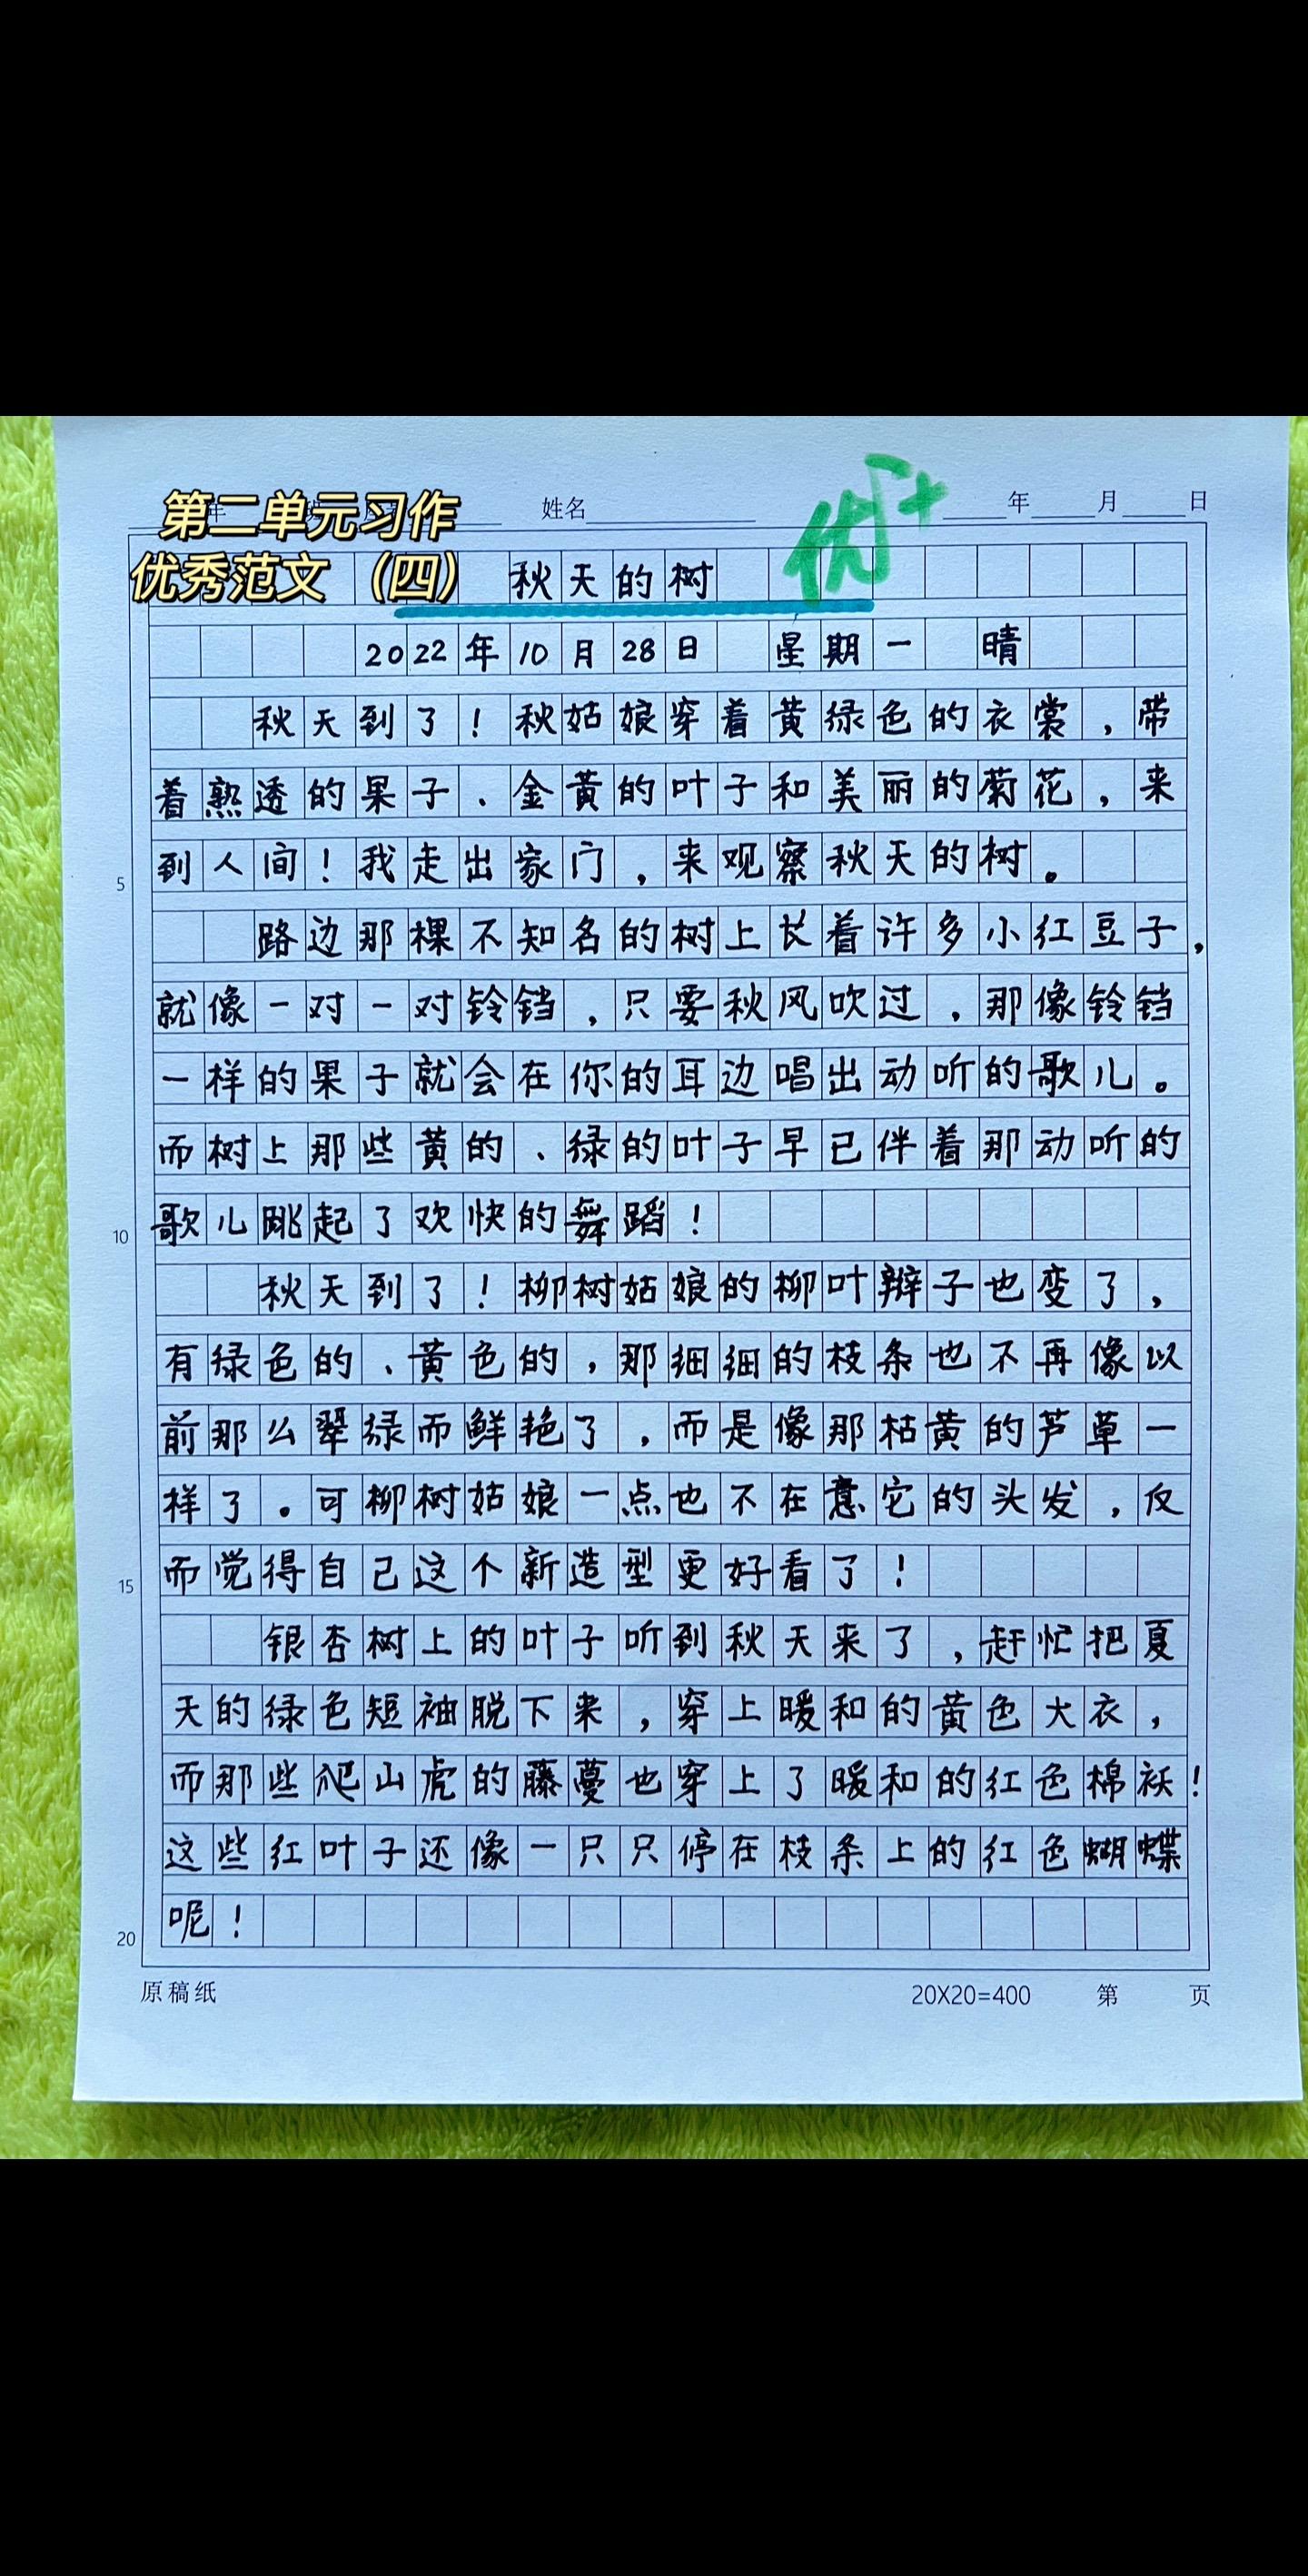 第二单元习作
年 姓名 年 月 日
优+
优秀范文（四）
秋天的树
2022年10月28日 星期一 晴
秋天到了！秋姑娘穿着黄绿色的衣裳，带
着熟透的果子、金黄的叶子和美丽的菊花，来
到人间！我走出家门，来观察秋天的树。
5
路边那棵不知名的树上长着许多小红豆子，
就像一对一对铃铛，只要秋风吹过，那像铃铛
一样的果子就会在你的耳边唱出动听的歌儿。
而树上那些黄的、绿的叶子早已伴着那动听的
歌儿跳起了欢快的舞蹈！
10
秋天到了！柳树姑娘的柳叶辫子也变了，
有绿色的、黄色的，那细细的枝条也不再像以
前那么翠绿而鲜艳了，而是像那枯黄的芦草一
样了。可柳树姑娘一点也不在意它的头发，反
而觉得自己这个新造型更好看了！
15
银杏树上的叶子听到秋天来了，赶忙把夏
天的绿色短袖脱下来，穿上暖和的黄色大衣，
而那些爬山虎的藤蔓也穿上了暖和的红色棉袄！
这些红叶子还像一只只停在枝条上的红色蝴蝶
呢！
20
原稿纸 20X20=400 第 页